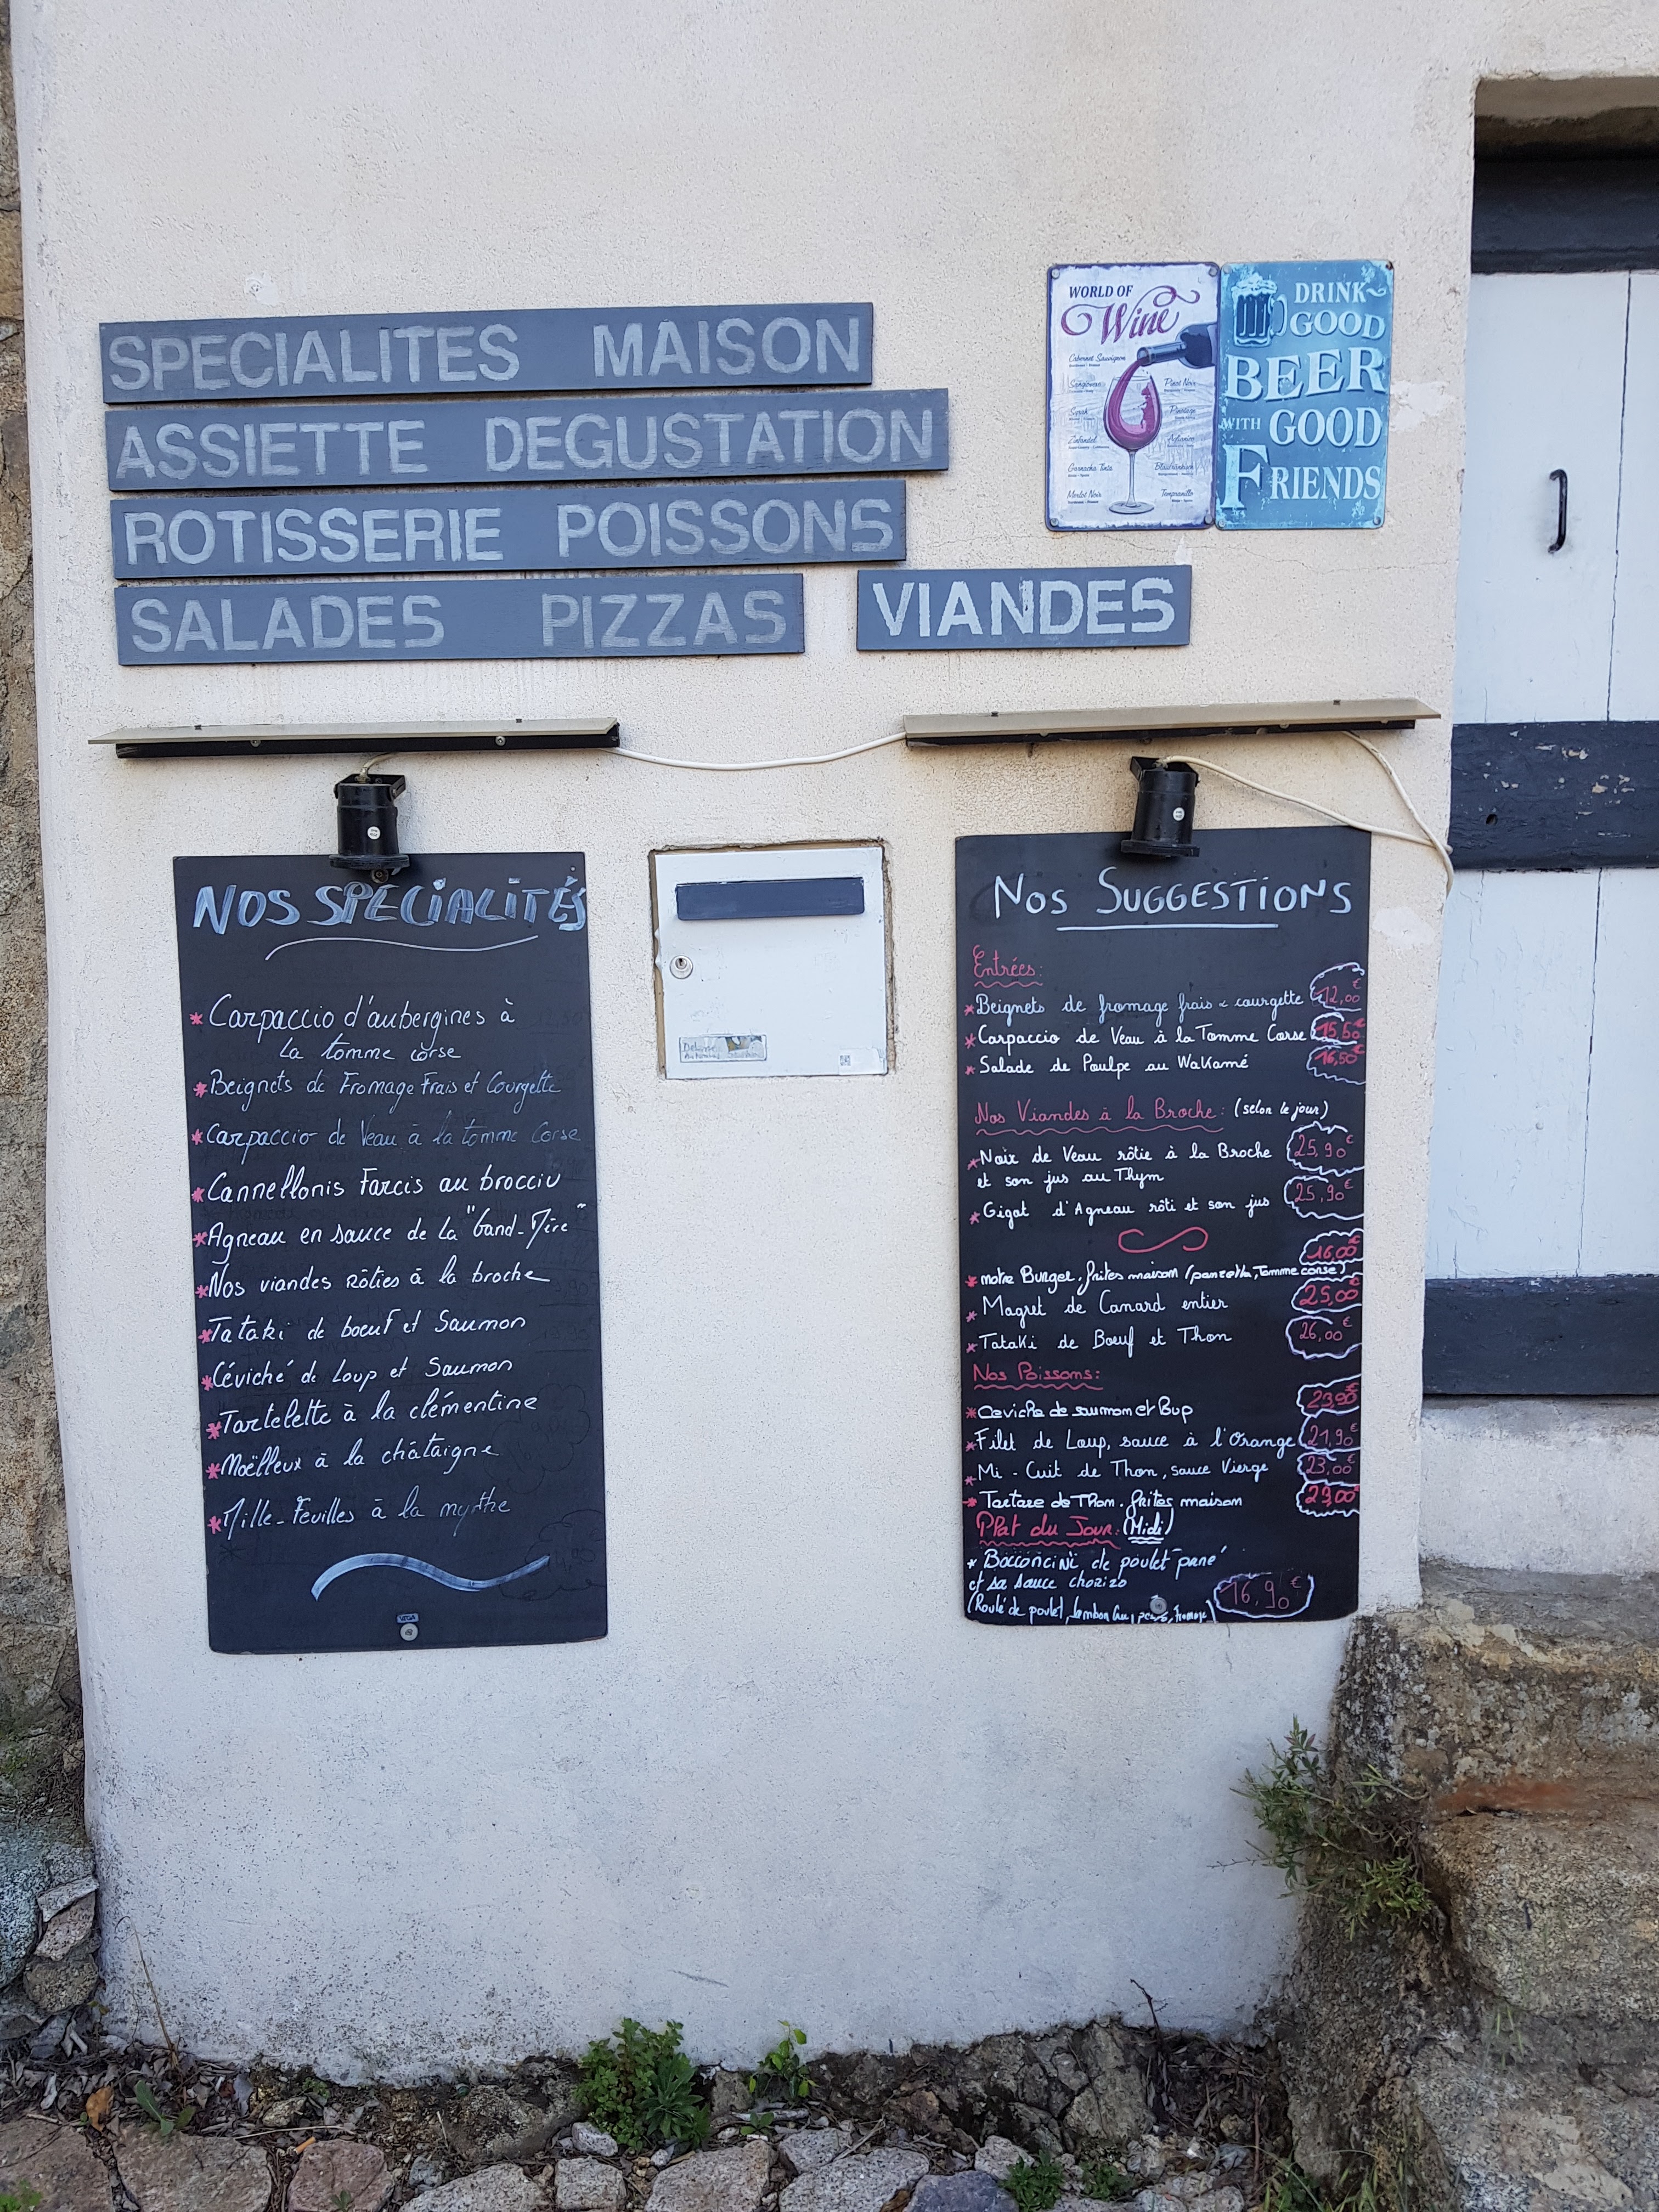 SPECIALITES MAISON
ASSIETTE DEGUSTATION
ROTISSERIE POISSONS
SALADES PIZZAS VIANDES
WORLD OF
Wine
Cabernet Sauvignon
Sangiovese
Pinot Noir
Syrah
Pinotage
Zinfandel
Aglianico
Garnacha Tinta
Blaufränkisch
Merlot Noir
Tempranillo
DRINK
GOOD
BEER
WITH GOOD
FRIENDS
NOS SPECIALITÉS
*Carpaccio d'aubergines à
La tomme corse
*Beignets de Fromage Frais et Courgette
*Carpaccio de Veau à la tomme Corse
*Cannellonis Farcis au brocciu
*Agneau en sauce de la "Gand-Mère"
*Nos viandes rôties à la broche
*Tataki de boeuf et Saumon
*Céviché de Loup et Saumon
*Tartelette à la clémentine
*Moëlleux à la châtaigne
*Mille-Feuilles à la myrthe
NOS SUGGESTIONS
Entrées:
*Beignets de fromage frais & courgette 12,00€
*Carpaccio de Veau à la Tomme Corse 15,50€
*Salade de Poulpe au Wakamé 16,50€
Nos Viandes à la Broche: (selon le jour)
*Noix de Veau rôtie à la Broche 25,90€
et son jus au Thym
*Gigot d'Agneau rôti et son jus 25,90€
16,00€
*notre Burger, frites maison (panzetta, Tomme corse)
*Magret de Canard entier 25,00€
*Tataki de Boeuf et Thon 26,00€
Nos Poissons:
*Ceviche de saumon et Bup 23,90€
*Filet de Loup, sauce à l'Orange 21,90€
*Mi-Cuit de Thon, sauce Vierge 23,00€
*Tartare de Thon, frites maison 23,00€
Plat du Jour: (Midi)
*Bocconcini de poulet pané
et sa sauce chorizo 16,90€
(Roulé de poulet, Jambon Cru, fromage)